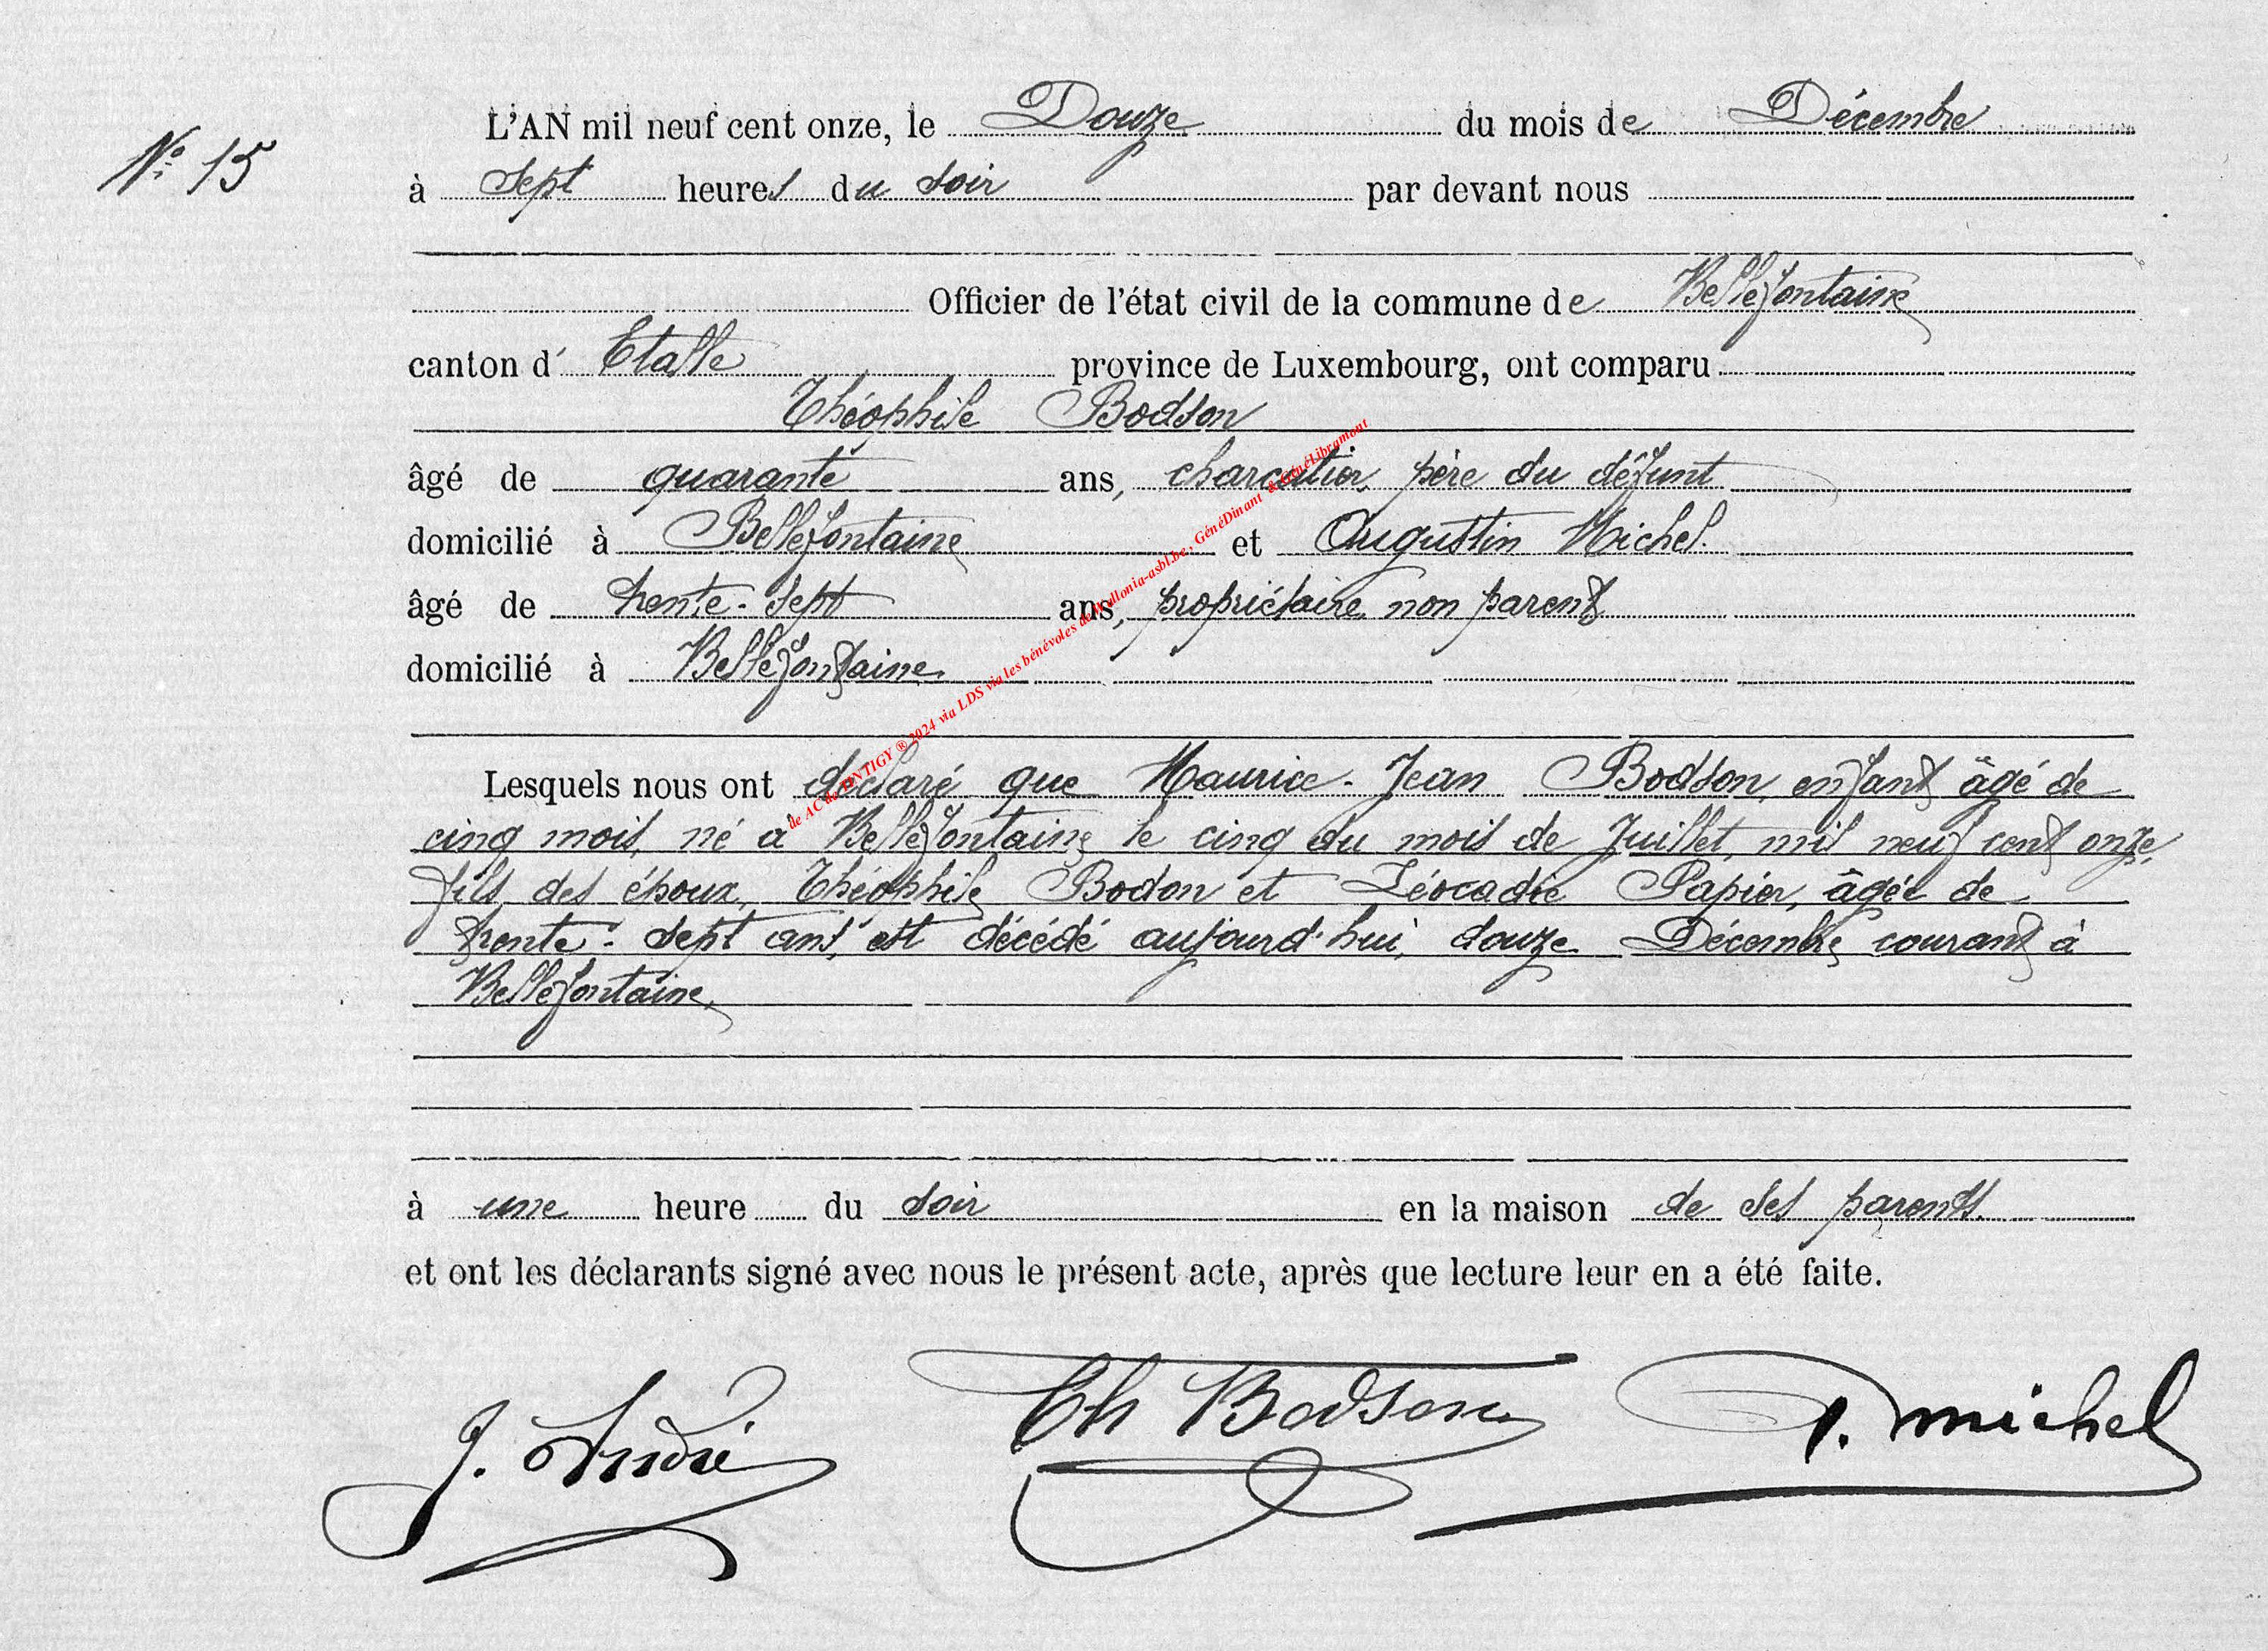 N° 15
L'AN mil neuf cent onze, le Douze du mois de Décembre
à sept heures du soir par devant nous
Officier de l'état civil de la commune de Bellefontaine
canton d' Etalle province de Luxembourg, ont comparu
Théophile Bodson
âgé de quarante ans, charcutier, père du défunt
domicilié à Bellefontaine et Augustin Michel.
âgé de trente-sept ans, propriétaire, non parent
domicilié à Bellefontaine.
Lesquels nous ont déclaré que Maurice-Jean Bodson, enfant âgé de
cinq mois, né à Bellefontaine le cinq du mois de Juillet, mil neuf cent onze,
fils des époux, Théophile Bodson et Léocadie Papier, âgée de
trente-sept ans, est décédé aujourd'hui, douze Décembre courant à
Bellefontaine,
à une heure du soir en la maison de ses parents.
et ont les déclarants signé avec nous le présent acte, après que lecture leur en a été faite.
J. André Th Bodson michel
de AC de TINTIGY ® 2024 via LDS via les bénévoles de Wallonia-asbl.be, GénéDinant & GénéLibramont